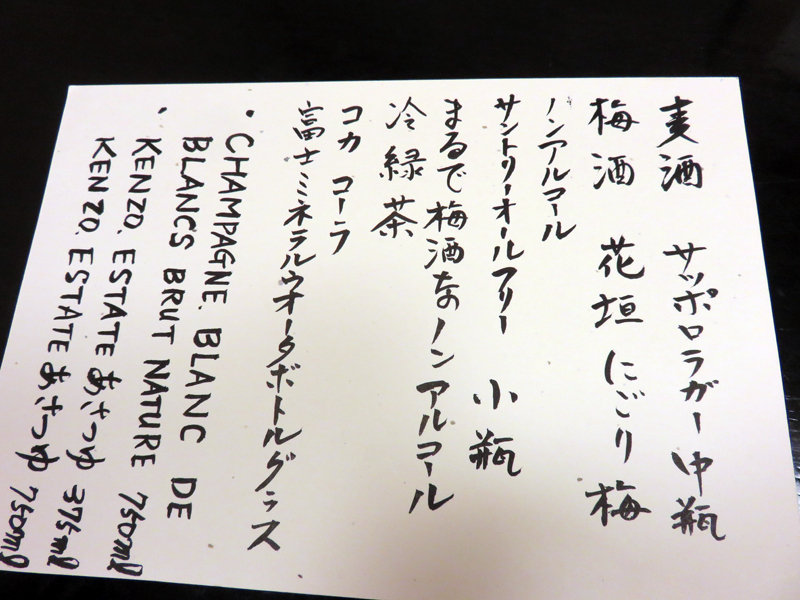 麦酒 サッポロラガー中瓶
梅酒 花垣にごり梅
ノンアルコール
サントリーオールフリー 小瓶
まるで梅酒なノンアルコール
冷緑茶
コカコーラ
富士ミネラルウオータボトルグラス
・CHAMPAGNE. BLANC DE
BLANCS BRUT NATURE 750ml
・KENZO. ESTATE あさつゆ 375ml
KENZO. ESTATE あさつゆ 750ml